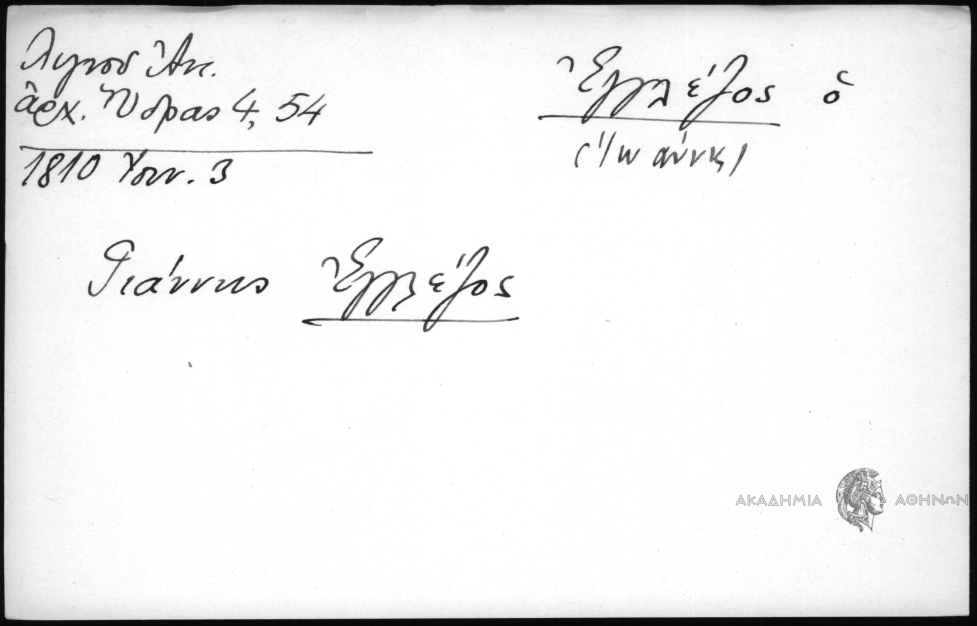 Λιγνοῦ Ἀν.
ἀρχ. Ὕδρας 4, 54
1810 Ἰουν. 3
Ἐγγλέζος ὁ
(Ἰωάννης)
Γιάννης Ἐγγλέζος
ΑΚΑΔΗΜΙΑ ΑΘΗΝΩΝ